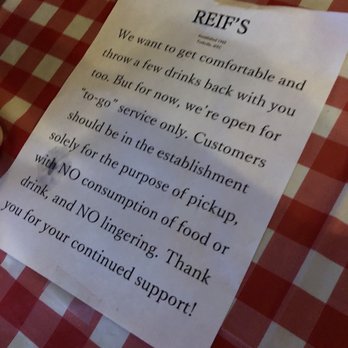 REIF'S
Established 1942
Yorkville, NYC
We want to get comfortable and
throw a few drinks back with you
too. But for now, we're open for
"to-go" service only. Customers
should be in the establishment
solely for the purpose of pickup,
with NO consumption of food or
drink, and NO lingering. Thank
you for your continued support!